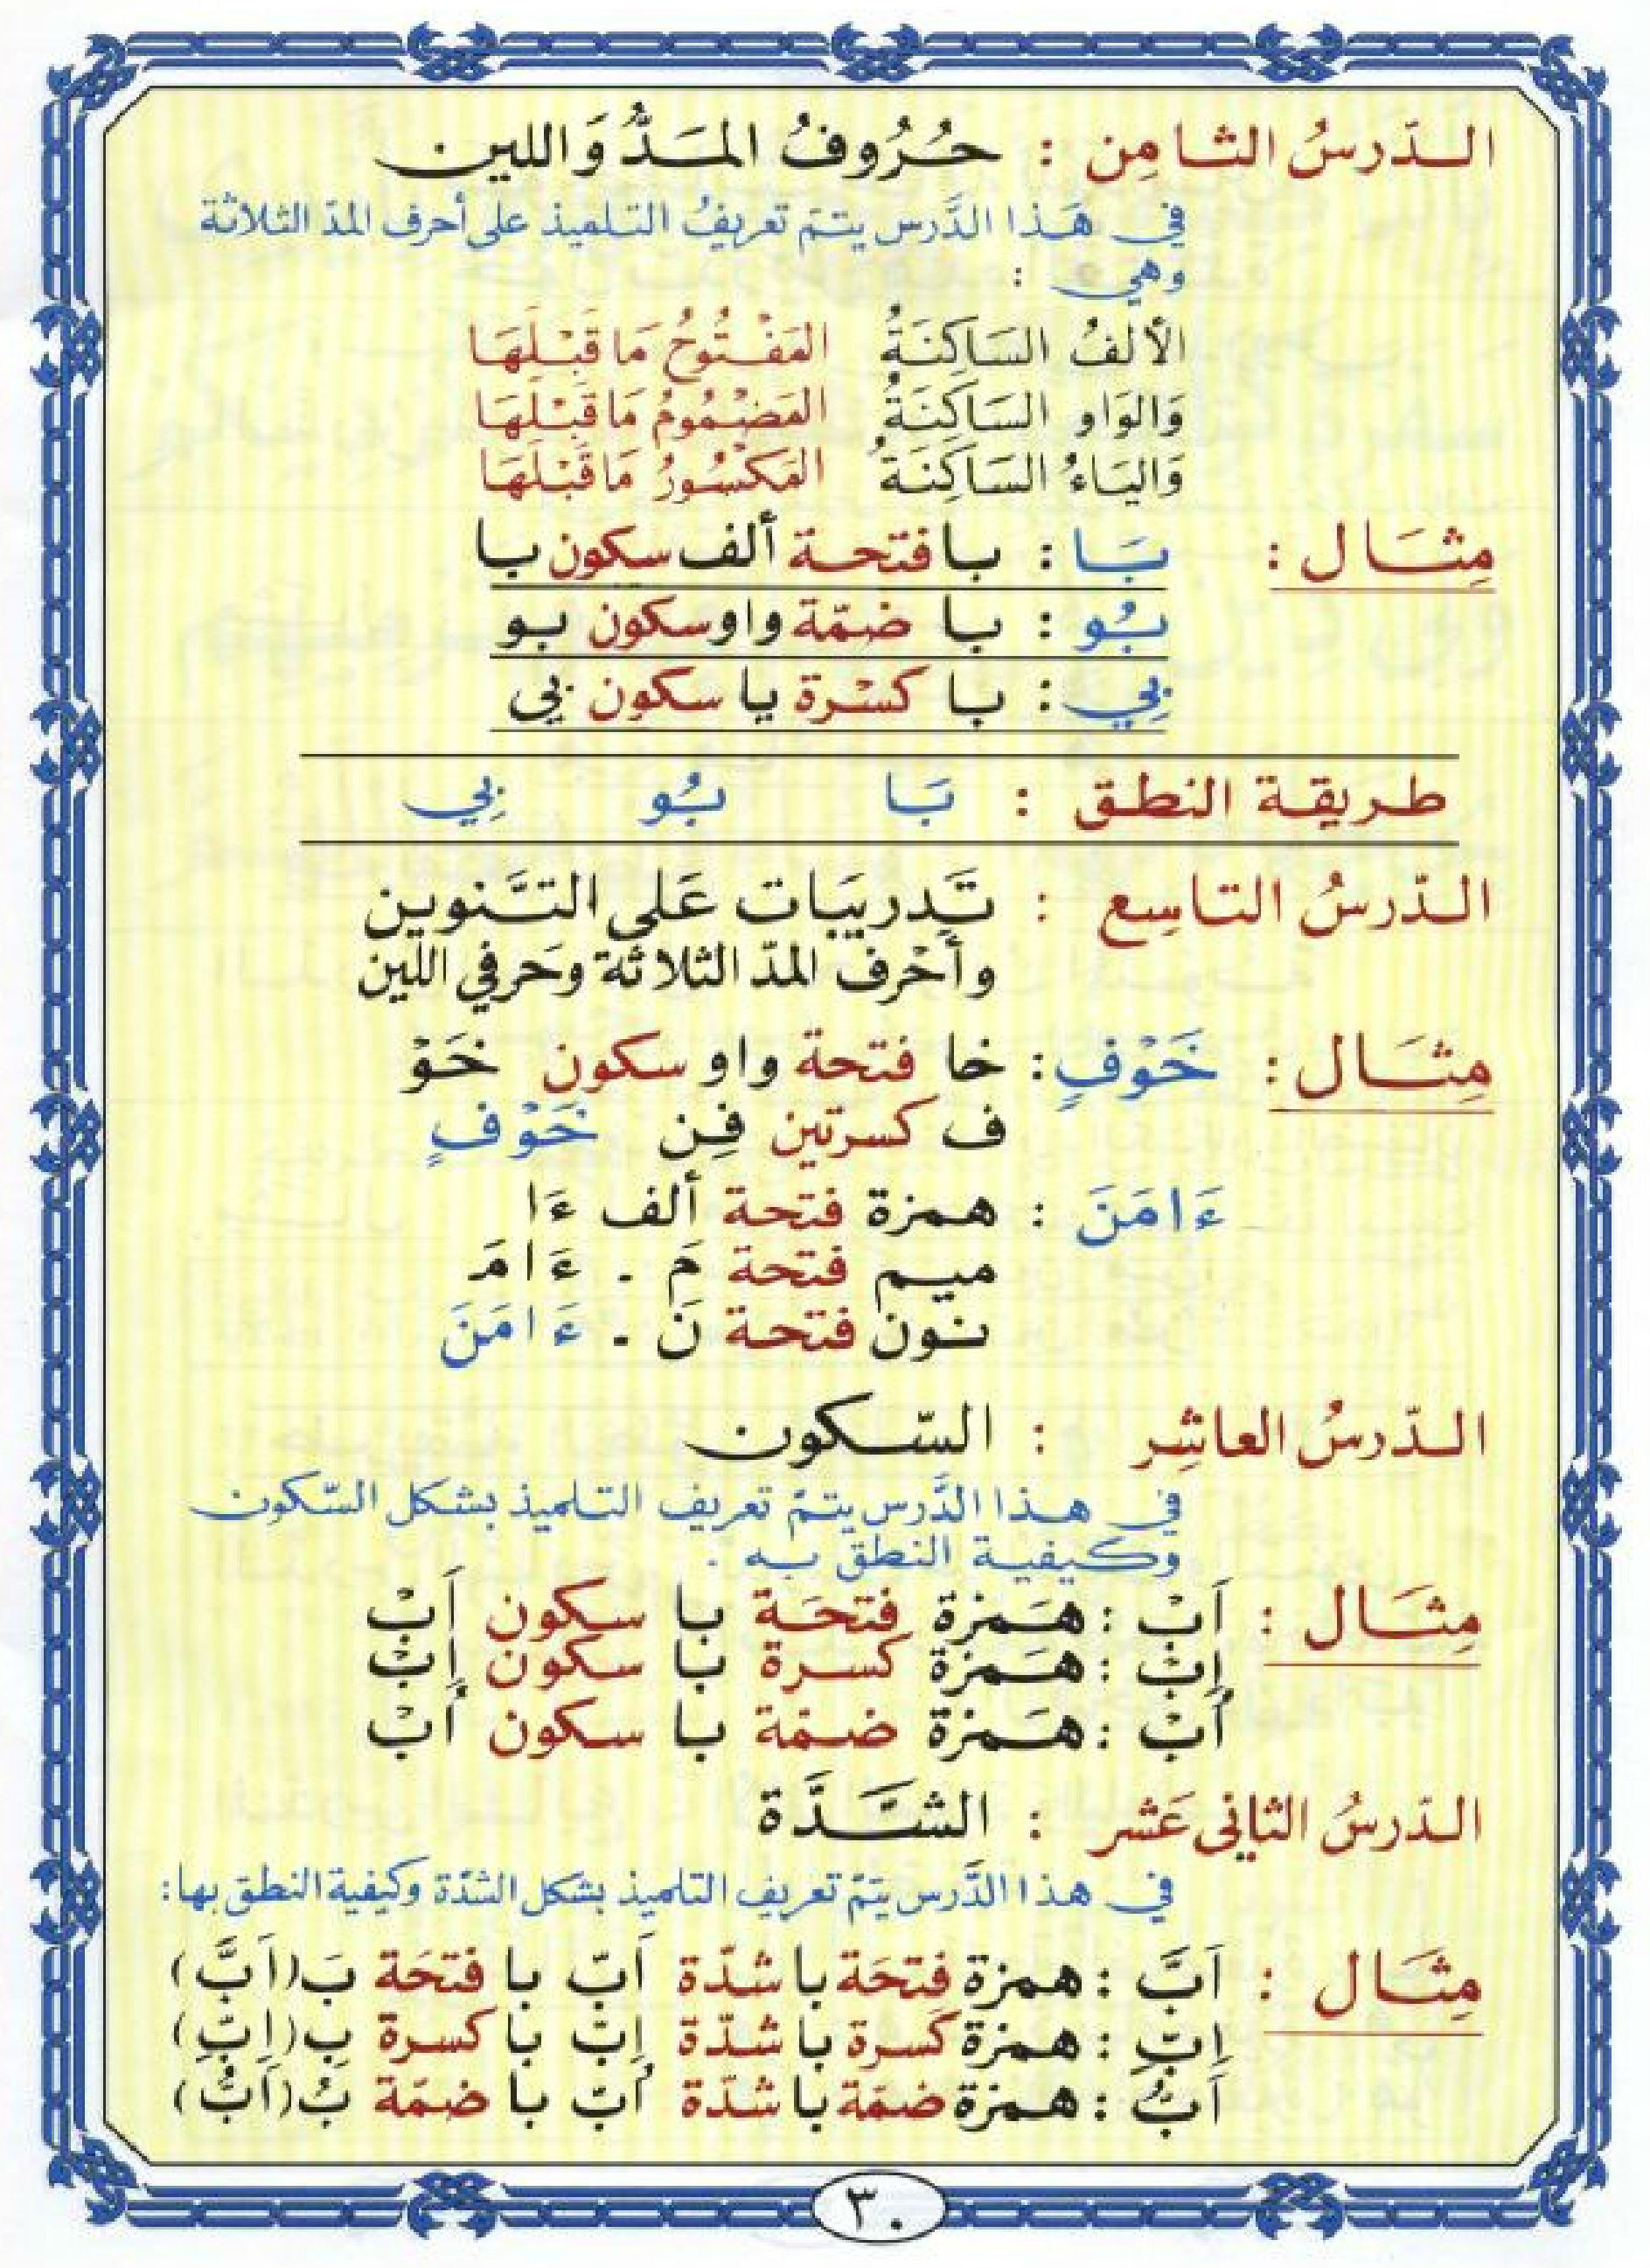 الدّرسُ الثامِن : حُرُوفُ المَدُّ وَاللين
في هَذا الدَّرس يتمّ تعريفُ التلميذ على أحرف المدّ الثلاثة
وهي :
الألفُ السَاكِنَةُ المَفْتُوحُ مَا قَبْلَهَا
وَالوَاو السَاكِنَةُ المَضْمُومُ مَا قَبْلَهَا
وَاليَاءُ السَاكِنَةُ المَكْسُورُ مَا قَبْلَهَا
مِثَال : بَا : با فتحة ألف سكون با
بُو : با ضمّة واو سكون بو
بِي : با كسْرة يا سكون بي
طريقة النطق : بَا بُو بِي
الدّرسُ التاسِع : تَدريبَات عَلى التَّنوين
وأحْرف المدّ الثلاثة وحَرفي اللين
مِثَال : خَوْفٍ : خا فتحة واو سكون خَوْ
ف كسرتين فِن خَوْفٍ
ءَامَنَ : همزة فتحة ألف ءَا
ميم فتحة مَ . ءَامَ
نون فتحة نَ . ءَامَنَ
الدّرسُ العاشِر : السّكون
في هذا الدَّرس يتمّ تعريف التلميذ بشكل السّكون
وكيفية النطق به .
مِثَال : اَبْ : هَمزة فتحَة با سكون اَبْ
اِبْ : هَمزة كسرة با سكون اِبْ
اُبْ : هَمزة ضمّة با سكون اُبْ
الدّرسُ الثاني عَشر : الشَّدَّة
في هذا الدَّرس يتمّ تعريف التلميذ بشكل الشدّة وكيفية النطق بها :
مِثَال : اَبَّ : همزة فتحَة با شدّة اَبّ با فتحَة بَ (اَبَّ)
اِبِّ : همزة كسرة با شدّة اِبّ با كسرة بِ (اِبِّ)
اَبُّ : همزة ضمّة با شدّة اُبّ با ضمّة بُ (اَبُّ)
٣٠